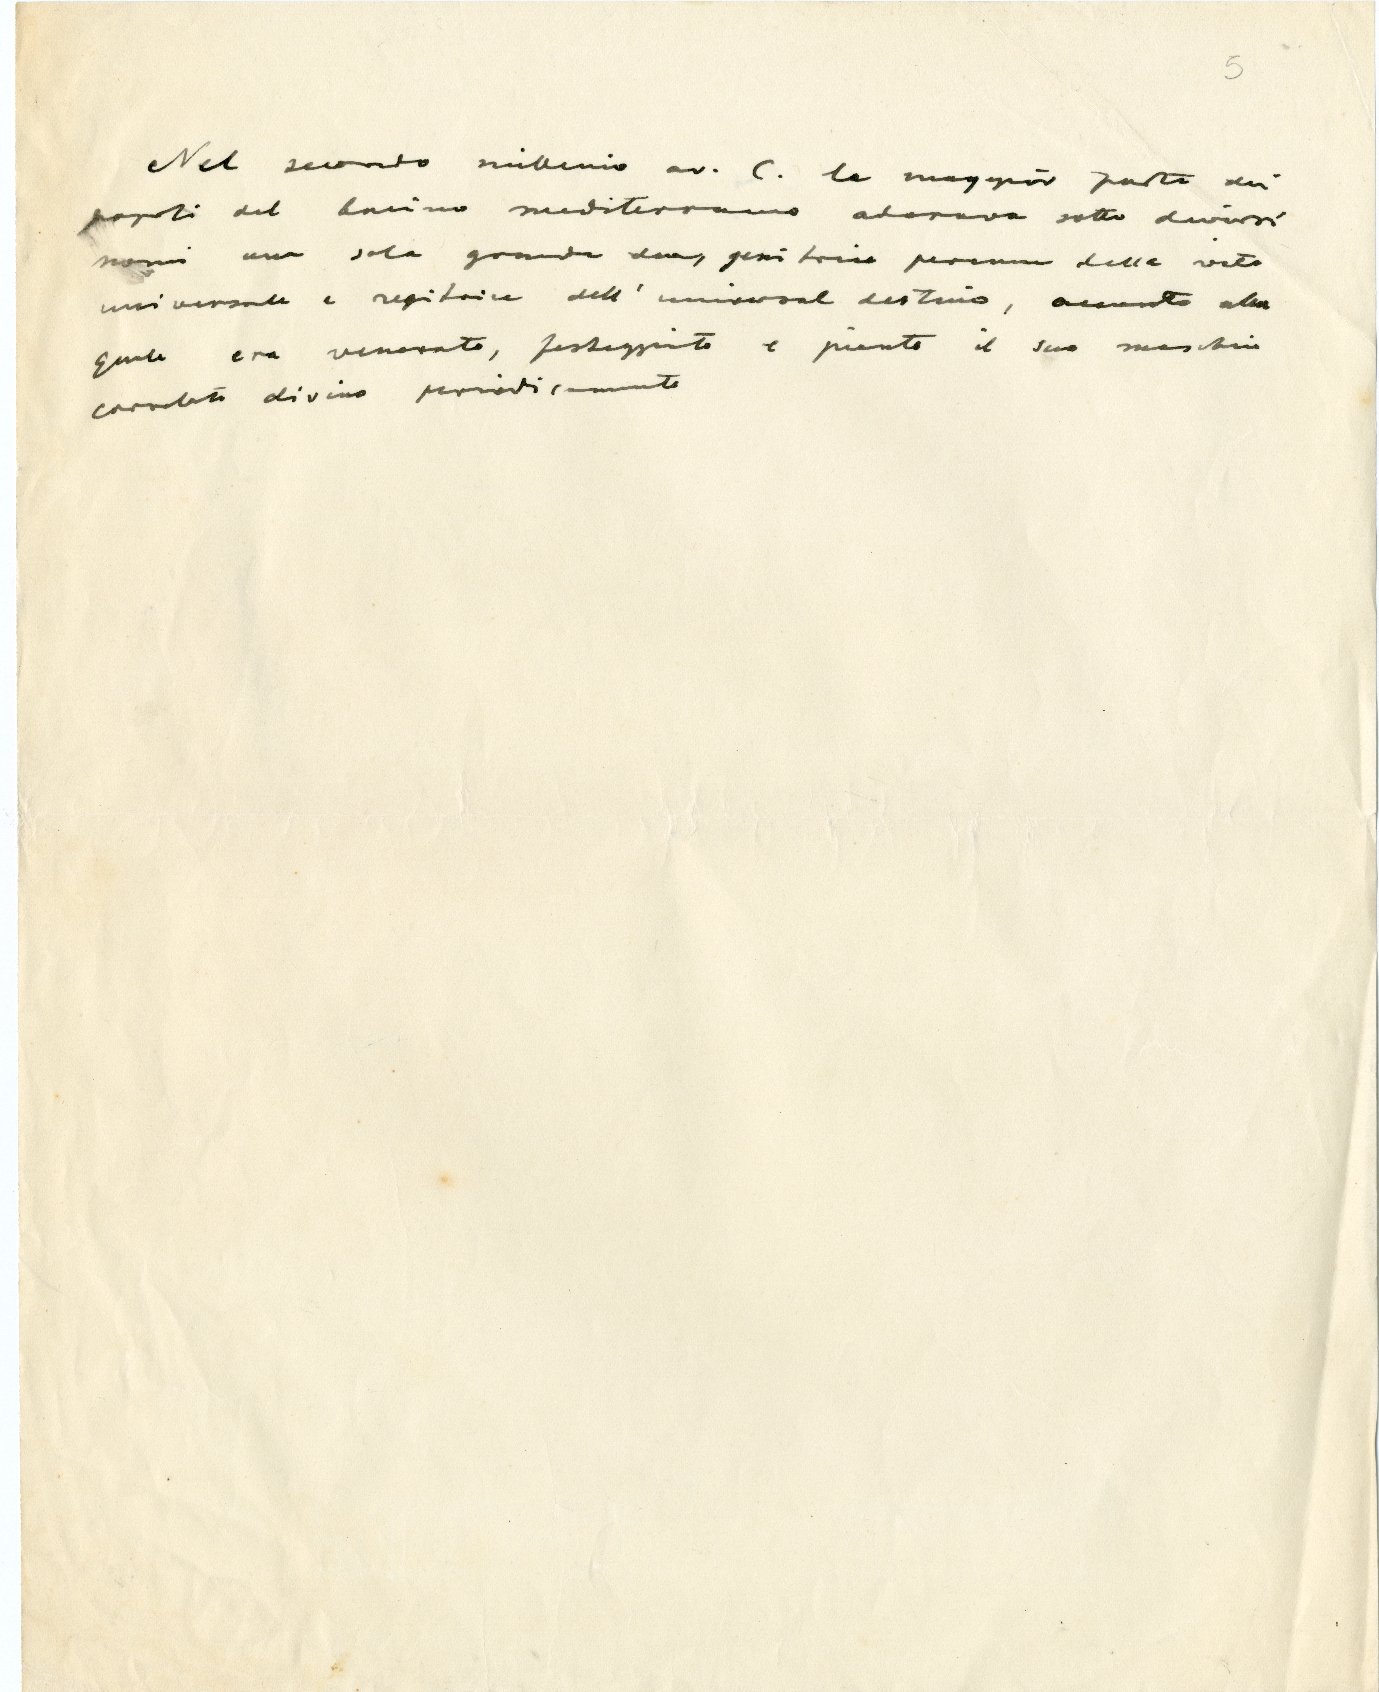 5
Nel secondo millenio av. C. la maggior parte dei
popoli del bacino mediterraneo adorava sotto diversi
nomi una sola grande dea, genitrice perenne della vita
universale e regitrice dell'universal destino, accanto alla
quale era venerato, festeggiato e pianto il suo maschio
correlato divino periodicamente